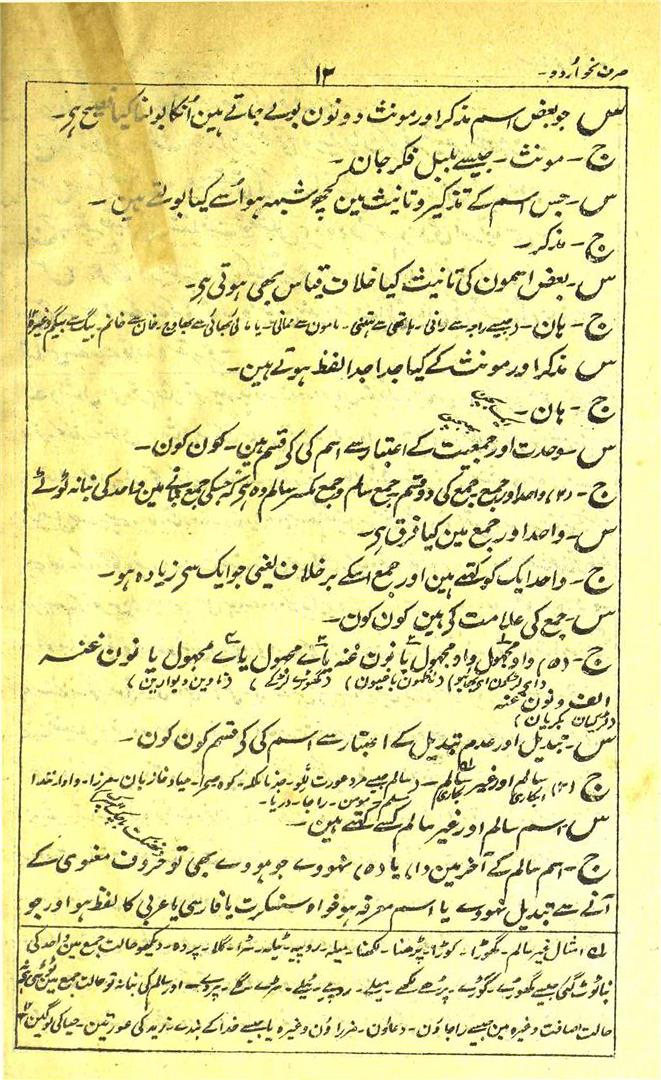 صرف نحو اُردو۔
۱۲
س جو بعض اسم مذکر اور مونث دونون بولے جاتے ہین اُنکا بولنا کیا فصیح ہی۔
ج۔ مونث۔ جیسے بلبل فکر جان۔
س۔ جس اسم کے تذکیر و تانیث مین کچھ شبہہ ہو اُسے کیا بولتے ہین۔
ج۔ مذکر۔
س۔ بعض اسمون کی تانیث کیا خلاف قیاس بھی ہوتی ہی۔
ج۔ ہان۔ جیسے راجہ سے رانی۔ ہاتھی سے ہتھنی۔ مامون سے ممانی۔ یا مائی بھائی سے بھاوج۔ خان سے خانم۔ بیگ سے بیگم وغیرہ
س مذکر اور مونث کے کیا جدا جدا لفظ ہوتے ہین۔
ج۔ ہان۔
س۔ وحدت اور جمعیت کے اعتبار سے اسم کی کی قسم ہین۔ کون کون۔
ج۔ (۲) واحد اور جمع۔ جمع کی دو قسم جمع سالم و جمع مکسر سالم وہ ہی کہ جسکی جمع بنانے مین واحد کی بنا نہ ٹوٹے
س۔ واحد اور جمع مین کیا فرق ہی۔
ج۔ واحد ایک کو کہتے ہین اور جمع اسکے برخلاف یعنی جو ایک سی زیادہ ہو۔
س۔ جمع کی علامت کی ہین کون کون۔
ج۔ (۵) واو مجہول واو مجہول یا نون غنہ یاے مجہول یاے مجہول یا نون غنہ
الف و نون غنہ
(لڑکیان بکریان)
س۔ تبدیل اور عدم تبدیل کے اعتبار سے اسم کی کی قسم کون کون۔
ج (۲) سالم اور غیر سالم۔ (سالم جیسے مرد عورت
موسن۔ راجا۔ دریا۔
س۔ اسم سالم اور غیر سالم کسے کہتے ہین۔
ج۔ اسم سالم کے آخر مین (ا) یا (ہ) نہووے جو ہووے بھی تو حروف معنوی کے
آنے سے تبدیل نہووے یا اسم معرفہ ہو خواہ سنسکرت یا فارسی یا عربی کا لفظ ہو اور جو
امثال غیر سالم۔ گھوڑا۔ کوڑا۔ پڑھنا۔ لکھنا۔ میلہ۔ روپیہ۔ ٹیلہ۔ گلا۔ پردہ۔ دیکھو حالت جمع مین واحد کی
بنا ٹوٹ گئی جیسے گھوڑے۔ کوڑے۔ میلے۔ روپے۔ ٹیلے۔ گلے۔ پردے۔ اور سالم کی بنا نہ تو حالت جمع مین
حالت اضافت وغیرہ مین جیسے راجاؤن۔ دعاؤن۔ وغیرہ یا جیسے خدا کے بندے۔ زید کی عورتین۔